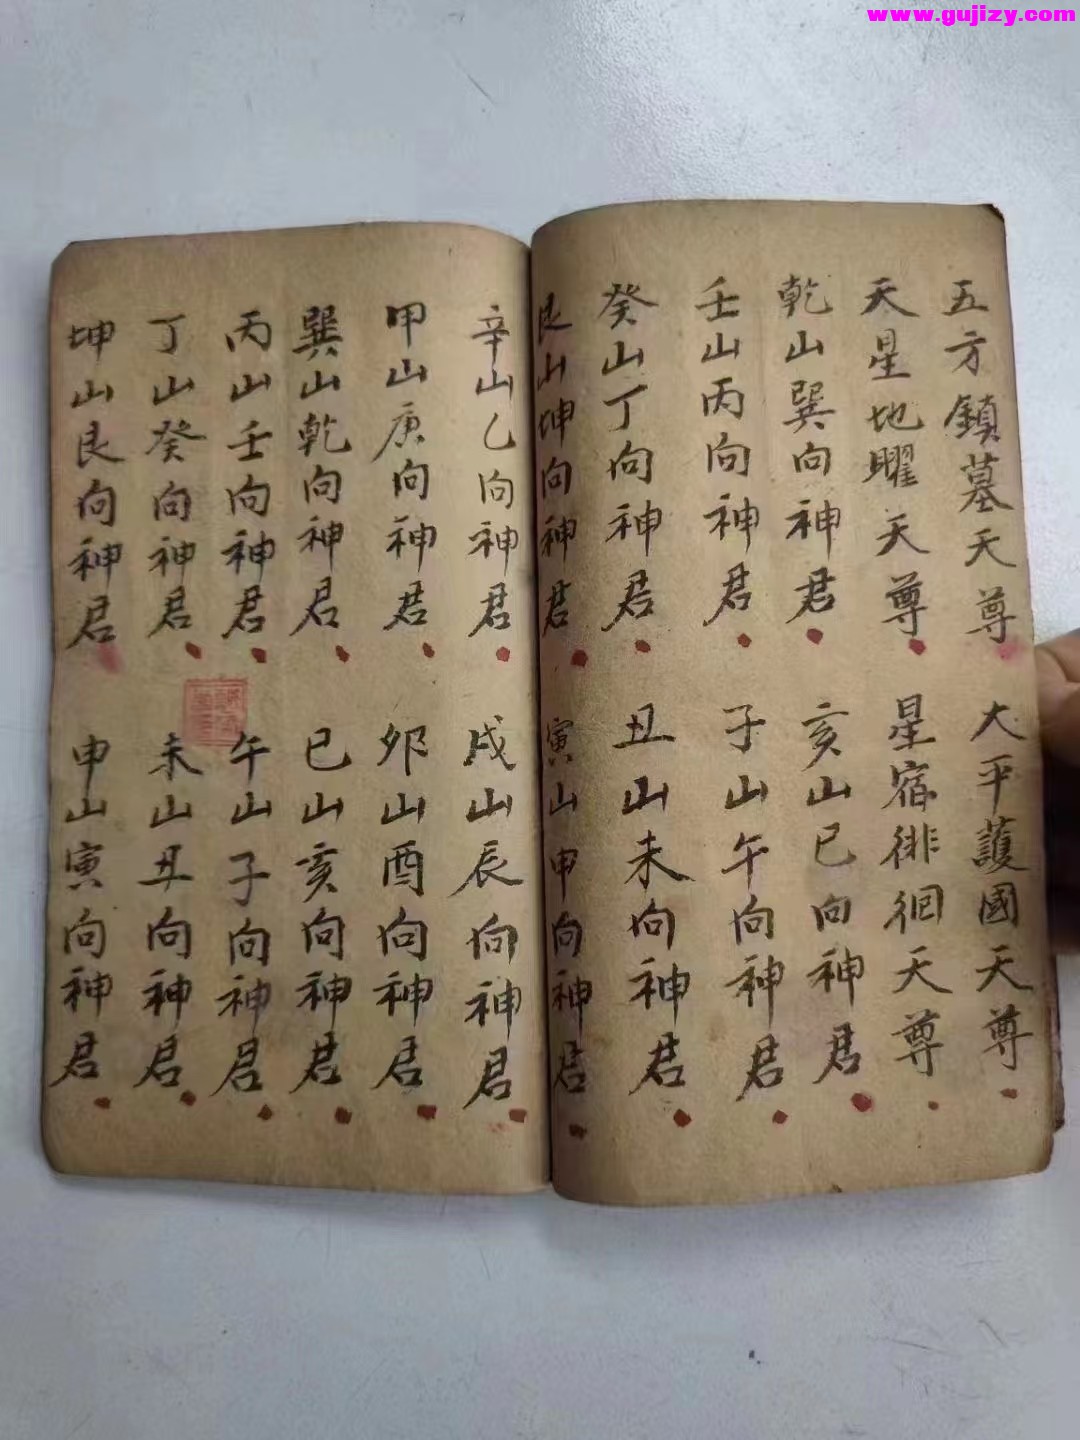 www.gujizy.com
五方鎮墓天尊 大平護國天尊
天星地曜天尊 星宿徘徊天尊
乾山巽向神君 亥山巳向神君
壬山丙向神君 子山午向神君
癸山丁向神君 丑山未向神君
艮山坤向神君 寅山申向神君
辛山乙向神君 戌山辰向神君
甲山庚向神君 夘山酉向神君
巽山乾向神君 巳山亥向神君
丙山壬向神君 午山子向神君
丁山癸向神君 未山丑向神君
坤山艮向神君 申山寅向神君